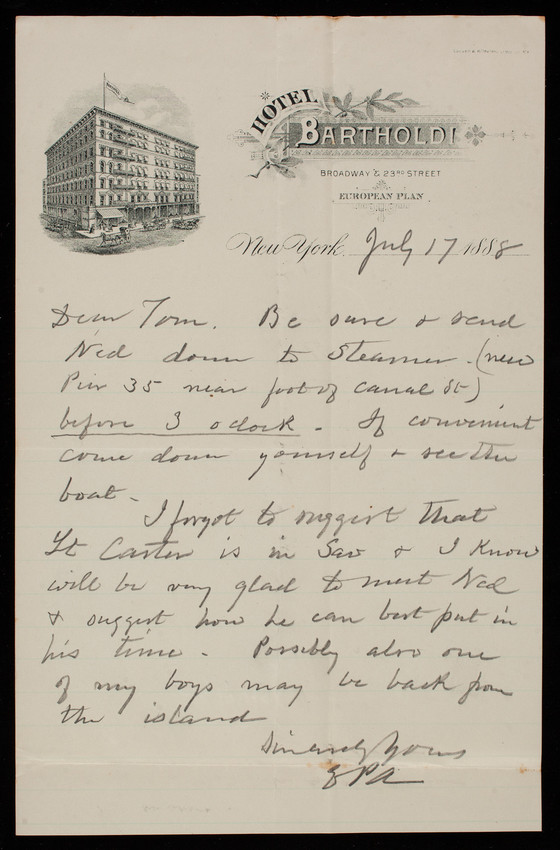 HOTEL
BARTHOLDI
BROADWAY & 23RD STREET
EUROPEAN PLAN
New York, July 17 1888
Dear Tom. Be sure & send
Ned down to Steamer. (new
Pier 35 near foot of Canal St)
before 3 oclock. If convenient
come down yourself & see the
boat.
I forgot to suggest that
Lt Carter is in Sav & I know
will be very glad to meet Ned
& suggest how he can best put in
his time. Possibly also one
of my boys may be back from
the island
Sincerely Yours